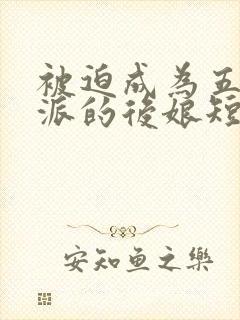 被迫成為五
派的後娘短
安知鱼之樂